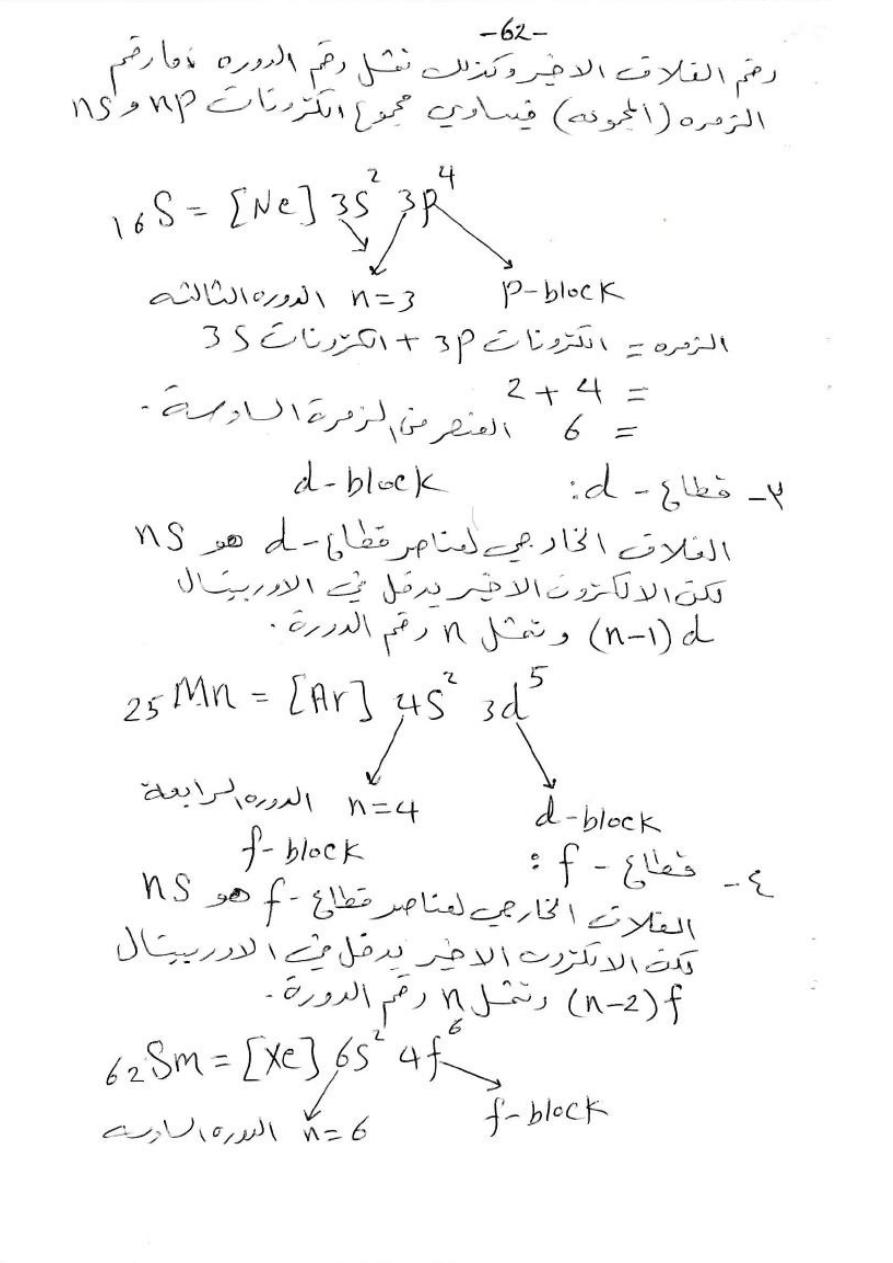 -62-
رقم الغلاف الاخير وكذلك تمثل رقم الدوره، اما رقم
الزمره (المجموعه) فيساوي مجموع الكترونات np و ns
16S = [Ne] 3S² 3p⁴
p-block
n=3 الدوره الثالثه
الزمره = الكترونات 3p + الكترونات 3S
= 4 + 2
= 6 العنصر من الزمرة السادسة.
٣- قطاع - d: d-block
الغلاف الخارجي لعناصر قطاع-d هو ns
لكن الالكترون الاخير يدخل في الاوربيتال
(n-1)d وتمثل n رقم الدورة.
25Mn = [Ar] 4S² 3d⁵
d-block
n=4 الدوره الرابعة
٤- قطاع - f: f-block
الغلاف الخارجي لعناصر قطاع-f هو ns
لكن الالكترون الاخير يدخل في الاوربيتال
(n-2)f وتمثل n رقم الدورة.
62Sm = [Xe] 6S² 4f⁶
f-block
n=6 الدوره السادسه